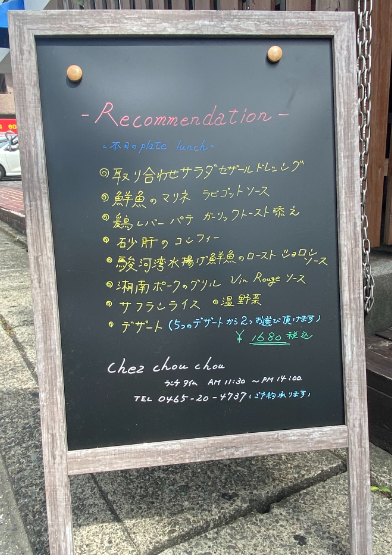 - Recommendation -
plate lunch
取り合わせサラダ セザールドレッシング
鮮魚のマリネ ラビゴットソース
鶏レバーパテ ガーリックトースト添え
砂肝のコンフィー
駿河湾水揚げ鮮魚のロースト ソース
湘南ポークのグリル Vin Rouge ソース
サフランライス 温野菜
デザート (5つのデザートから2つお選び頂けます)
¥ 1680 税込
Chez chou chou
ランチタイム AM 11:30 〜 PM 14:00
TEL 0465-20-4737 (ご予約承ります)